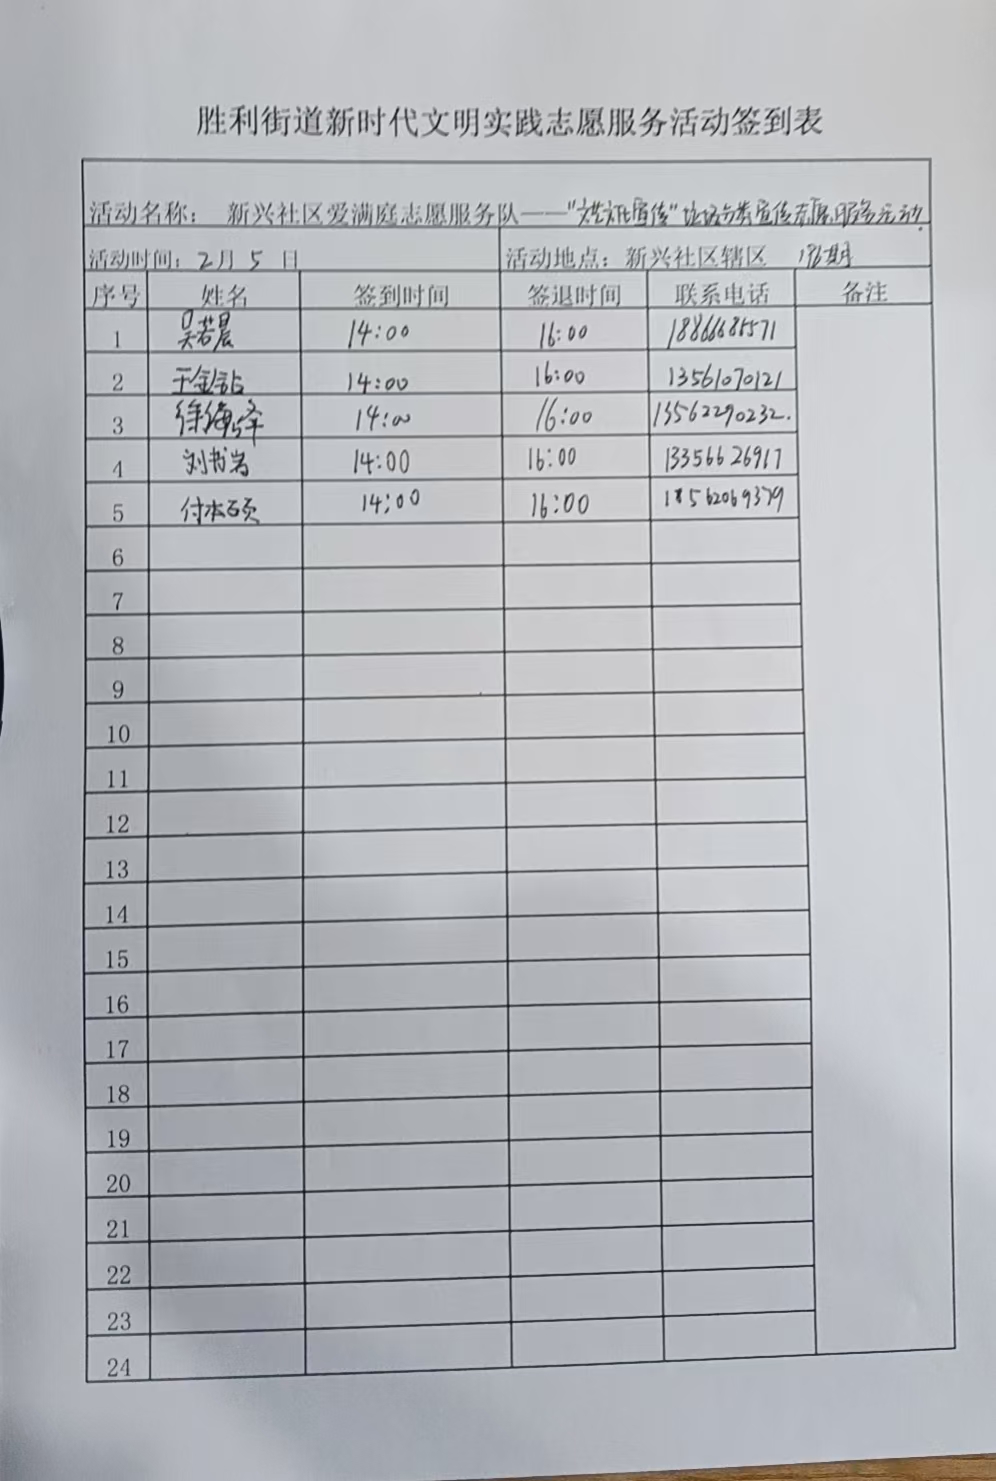 胜利街道新时代文明实践志愿服务活动签到表
活动名称： 新兴社区爱满庭志愿服务队——"文艺文化宣传"垃圾分类宣传志愿服务活动.
活动时间：2月5日 活动地点：新兴社区辖区
序号 姓名 签到时间 签退时间 联系电话 备注
1 吴若晨 14:00 16:00 18866685571
2 于金钻 14:00 16:00 13561070121
3 徐海泽 14:00 16:00 13562290232.
4 刘书岩 14:00 16:00 13356626917
5 付本硕 14:00 16:00 18562069379
6
7
8
9
10
11
12
13
14
15
16
17
18
19
20
21
22
23
24